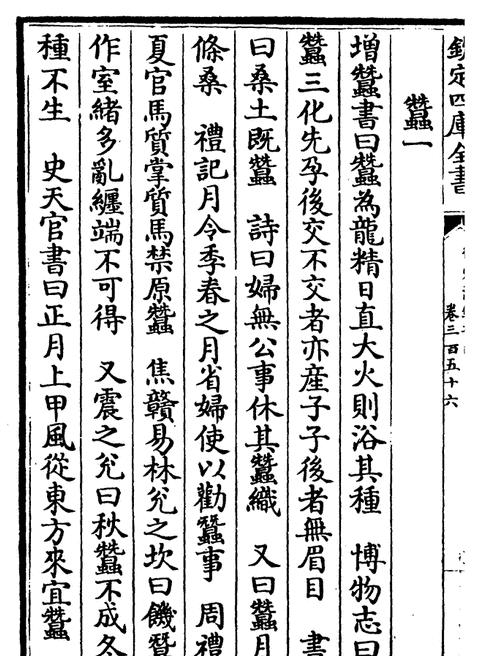 欽定四庫全書
卷三百五十六
蠶一
增蠶書曰蠶為龍精日直大火則浴其種　博物志曰
蠶三化先孕後交不交者亦産子子後者無眉目　書
曰桑土既蠶　詩曰婦無公事休其蠶織　又曰蠶月
條桑　禮記月令季春之月省婦使以勸蠶事　周禮
夏官馬質掌質馬禁原蠶　焦贛易林兊之坎曰饑蠶
作室緒多亂纏端不可得　又震之兊曰秋蠶不成冬
種不生　史天官書曰正月上甲風從東方來宜蠶